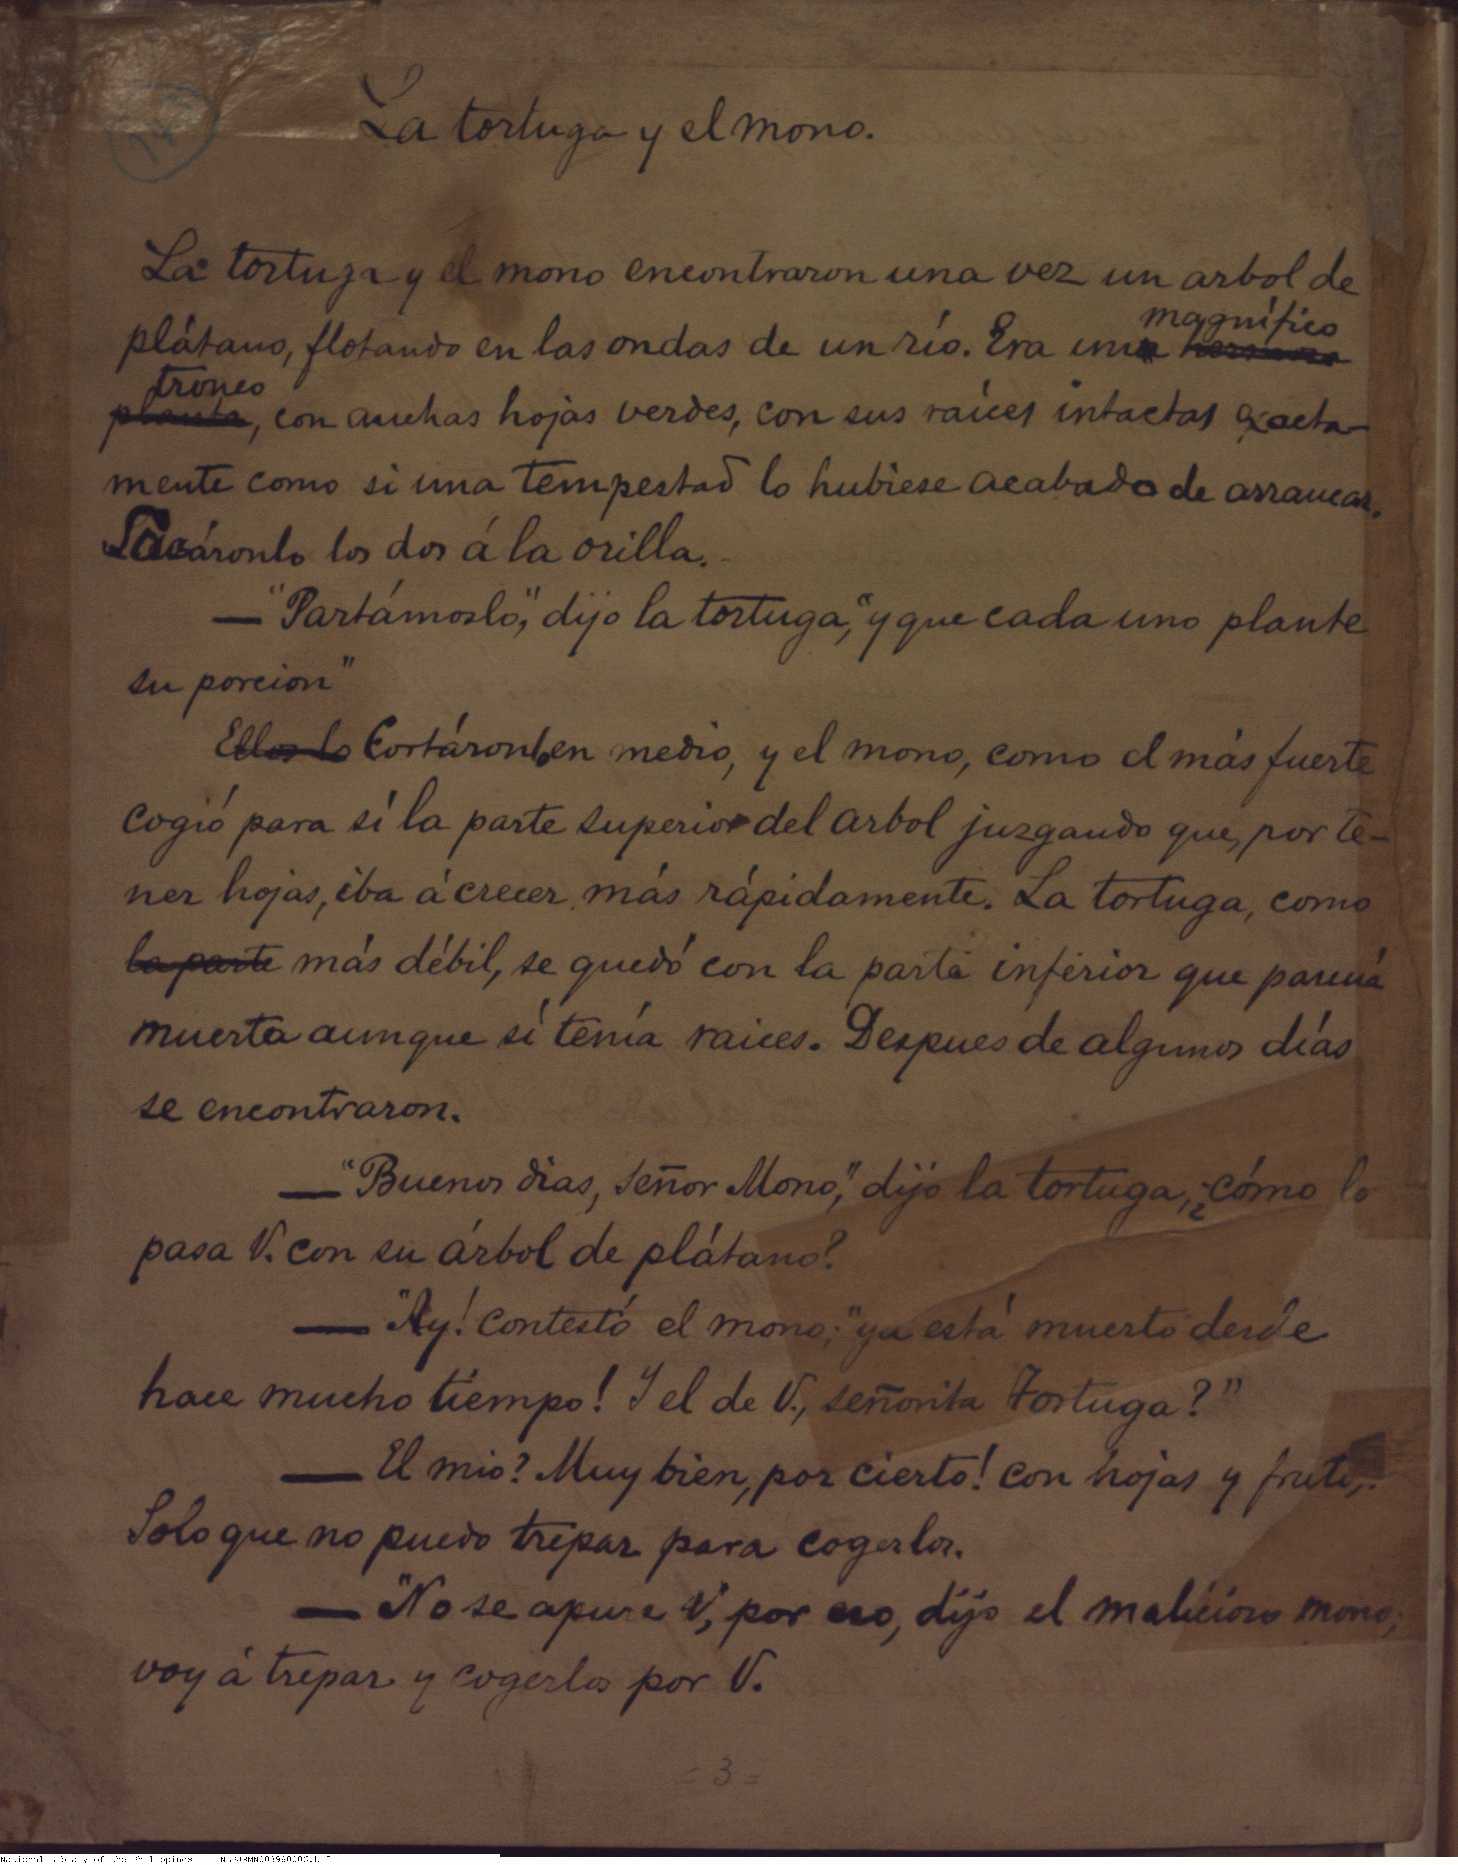 La tortuga y el mono.
La tortuga y el mono encontraron una vez un arbol de
magnífico
plátano, flotando en las ondas de un río. Era un hermosa
tronco
planta, con anchas hojas verdes, con sus raíces intactas exacta-
mente como si una tempestad lo hubiese acabado de arrancar.
Sacáronlo los dos á la orilla.
— "Partámoslo," dijo la tortuga, "y que cada uno plante
su porcion"
Ellos lo Cortáronlo en medio, y el mono, como el más fuerte
cogió para sí la parte superior del arbol juzgando que, por te-
ner hojas, iba á crecer más rápidamente. La tortuga, como
la parte más débil, se quedó con la parte inferior que parecía
muerta aunque sí tenía raices. Despues de algunos días
se encontraron.
— "Buenos dias, señor Mono," dijo la tortuga, ¿cómo lo
pasa V. con su árbol de plátano?
— "Ay! contestó el mono; "ya está muerto desde
hace mucho tiempo! Y el de V., señorita Tortuga?"
— El mio? Muy bien, por cierto! con hojas y fruto.
Solo que no puedo trepar para cogerlos.
— "No se apure V, por eso, dijo el malicioso mono;
voy á trepar y cogerlos por V.
= 3 =
National Library of the Philippines